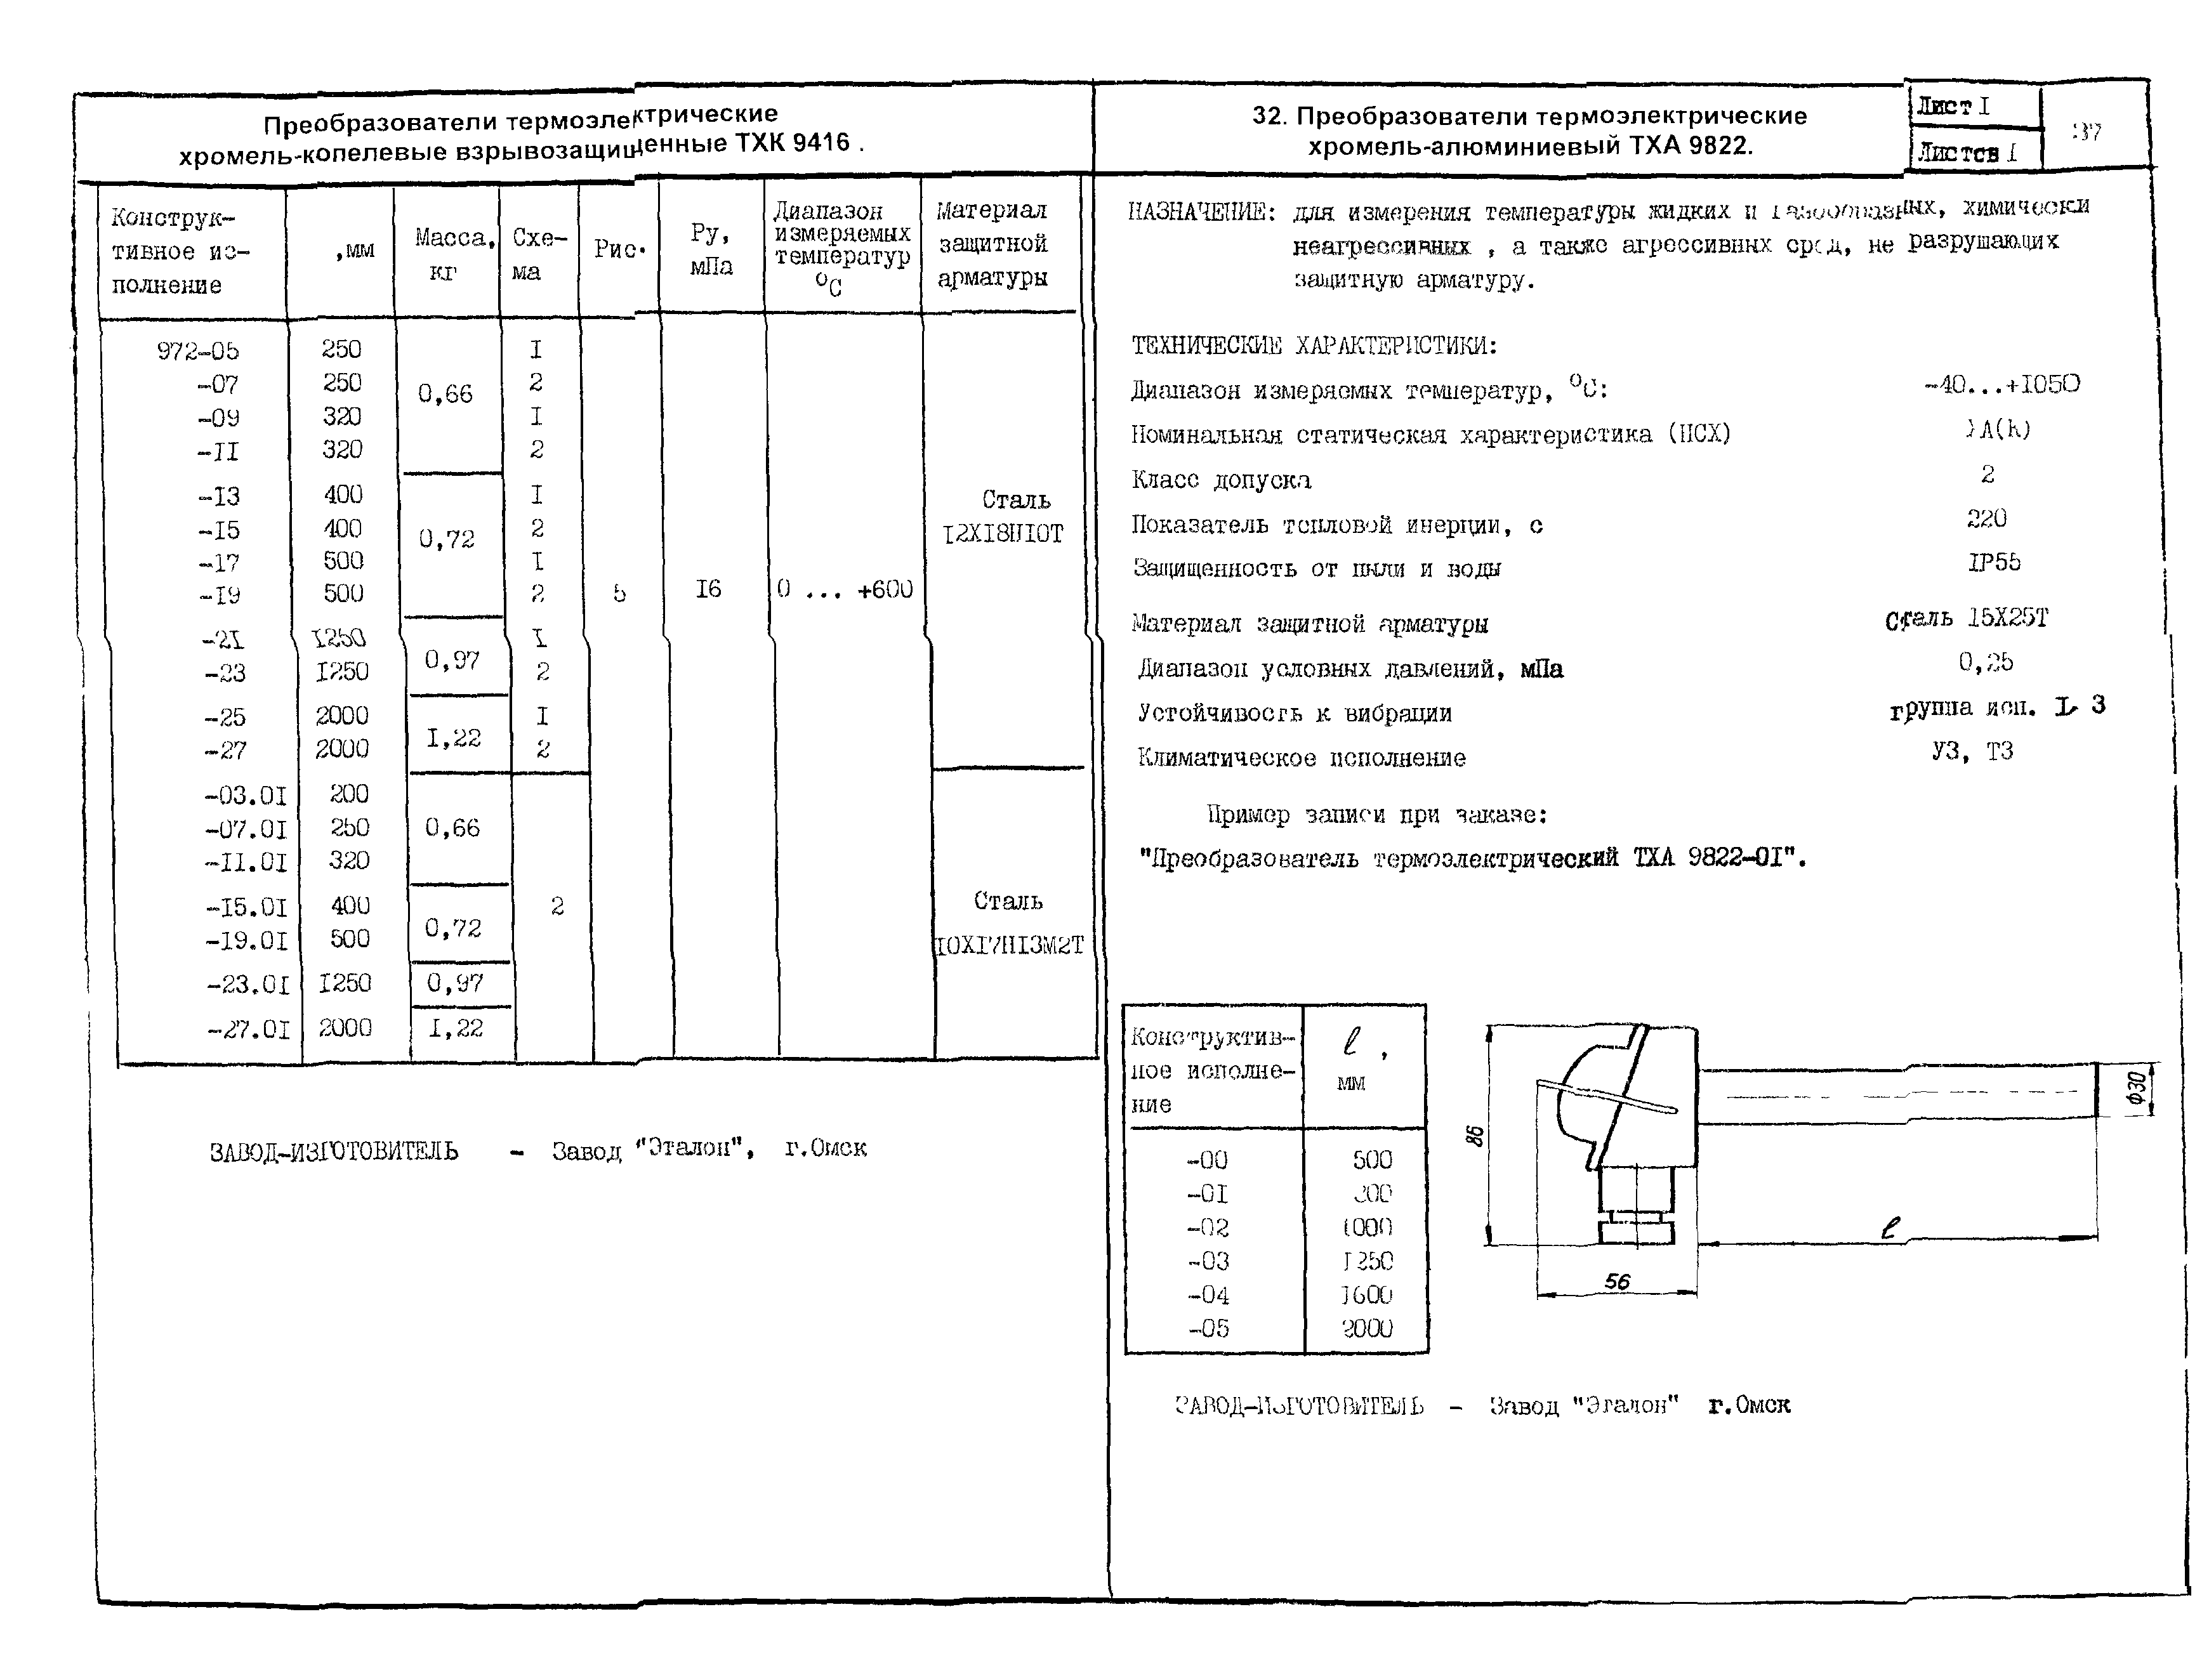 Преобразователи термоэлектрические
хромель-копелевые взрывозащищенные ТХК 9416 .
Конструк-
тивное ис-
полнение
,мм
Масса,
кг
Схе-
ма
Рис.
Ру,
мПа
Диапазон
измеряемых
температур
°С
Материал
защитной
арматуры
972-05 250 I
-07 250 2
0,66
-09 320 I
-II 320 2
-I3 400 I
-I5 400 2
0,72
-I7 500 I
-I9 500 2
5 I6 0 ... +600
Сталь
I2XI8HI0T
-2I I250 I
0,97
-23 I250 2
-25 2000 I
I,22
-27 2000 2
-03.0I 200
-07.0I 250 0,66
-II.0I 320
-I5.0I 400 2
0,72
-I9.0I 500
-23.0I I250 0,97
-27.0I 2000 I,22
Сталь
I0XI7HI3M2T
ЗАВОД-ИЗГОТОВИТЕЛЬ - Завод "Эталон", г.Омск
32. Преобразователи термоэлектрические
хромель-алюминиевый ТХА 9822.
Лист I
Листов I
37
НАЗНАЧЕНИЕ: для измерения температуры жидких и газообразных, химически
неагрессивных , а также агрессивных сред, не разрушающих
защитную арматуру.
ТЕХНИЧЕСКИЕ ХАРАКТЕРИСТИКИ:
Диапазон измеряемых температур, °С: -40...+I050
Номинальная статическая характеристика (НСХ) ХА(К)
Класс допуска 2
Показатель тепловой инерции, с 220
Защищенность от пыли и воды IP55
Материал защитной арматуры Сталь I5X25T
Диапазон условных давлений, мПа 0,25
Устойчивость к вибрации группа исп. L 3
Климатическое исполнение У3, Т3
Пример записи при заказе:
"Преобразователь термоэлектрический ТХА 9822-0I".
Конструктив-
ное исполне-
ние
ℓ ,
мм
-00 500
-0I
-02 I000
-03 I250
-04 I600
-05 2000
86
56
ℓ
Ф30
ЗАВОД-ИЗГОТОВИТЕЛЬ - Завод "Эталон" г.Омск